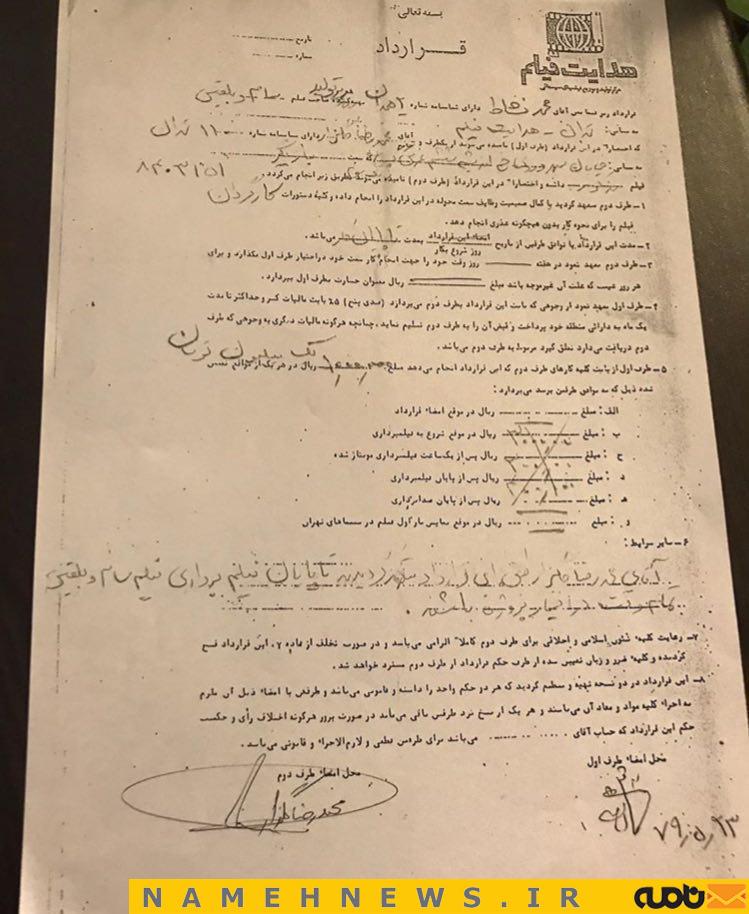 بسمه تعالی
هدایت فیلم
قرارداد
تاریخ
شماره
قرارداد زیر فیمابین آقای محمد نشاط دارای شناسنامه شماره فیلم سام و نرگس
به نشانی: تهران - هدایت فیلم
که اختصارا" در این قرارداد (طرف اول) نامیده می‌شود از یکطرف و آقای محمدرضا دارای شناسنامه شماره تهران
به نشانی:
فیلم داشته و اختصارا" در این قرارداد (طرف دوم) نامیده می‌شود بطریق زیر انجام می‌گردد.
۱- طرف دوم متعهد گردید با کمال صمیمیت وظایف سمت محوله در این قرارداد را انجام داده و کلیه دستورات کارگردان
فیلم را برای نحوه کار بدون هیچگونه عذری انجام دهد.
۲- مدت این قرارداد با توافق طرفین از تاریخ امضاء این قرارداد / روز شروع بکار بمدت می‌باشد.
۳- طرف دوم متعهد نمود در هفته روز وقت خود را جهت انجام کار سمت خود در اختیار طرف اول بگذارد و برای
هر روز غیبت که علت آن غیرموجه باشد مبلغ ریال بعنوان خسارت بطرف اول بپردازد.
۴- طرف اول متعهد نمود از وجوهی که بابت این قرارداد بطرف دوم می‌پردازد (صدی پنج) ۵٪ بابت مالیات کسر و حداکثر تا مدت
یک ماه به دارائی منطقه خود پرداخت و قبض آن را به طرف دوم تسلیم نماید، چنانچه هرگونه مالیات دیگری به وجوهی که طرف
دوم دریافت می‌دارد تعلق گیرد مربوط به طرف دوم می‌باشد.
۵- طرف اول از بابت کلیه کارهای طرف دوم که این قرارداد انجام می‌دهد مبلغ یک میلیون تومان ریال در هر یک از مراحل
شده ذیل که به توافق طرفین برسد می‌پردازد:
الف: مبلغ ریال در موقع امضاء قرارداد
ب: مبلغ ریال در موقع شروع به فیلمبرداری
ج: مبلغ ریال پس از یکساعت فیلمبرداری مونتاژ شده
د: مبلغ ریال پس از پایان فیلمبرداری
هـ: مبلغ ریال پس از پایان صدابرداری
و: مبلغ ریال در موقع نمایش بار اول فیلم در سینماهای تهران
۶- سایر شرایط:
آقای محمدرضا گلزار طبق این قرارداد متعهد گردیدند تا پایان فیلم برداری فیلم سام و نرگس
۷- رعایت کلیه شئون اسلامی و اخلاقی برای طرف دوم کاملا" الزامی می‌باشد و در صورت تخلف از ماده ۷، این قرارداد فسخ
گردیده و کلیه ضرر و زیان تعیین شده از طرف حکم قرارداد از طرف دوم مسترد خواهد شد.
۸- این قرارداد در دو نسخه تهیه و تنظیم گردید که هر دو حکم واحد را داشته و قانونی می‌باشد و طرفین با امضاء ذیل آن ملزم
به اجراء کلیه مواد و مفاد آن می‌باشند و هر یک از نسخ نزد طرفین باقی می‌ماند در صورت بروز هرگونه اختلاف رأی و حکمیت
حکم این قرارداد که جناب آقای می‌باشد برای طرفین قطعی و لازم‌الاجراء و قانونی می‌باشد.
محل امضاء طرف اول
محل امضاء طرف دوم
محمدرضا گلزار
۷۹٫۵٫۲۳
NAMEHNEWS.IR
نامه